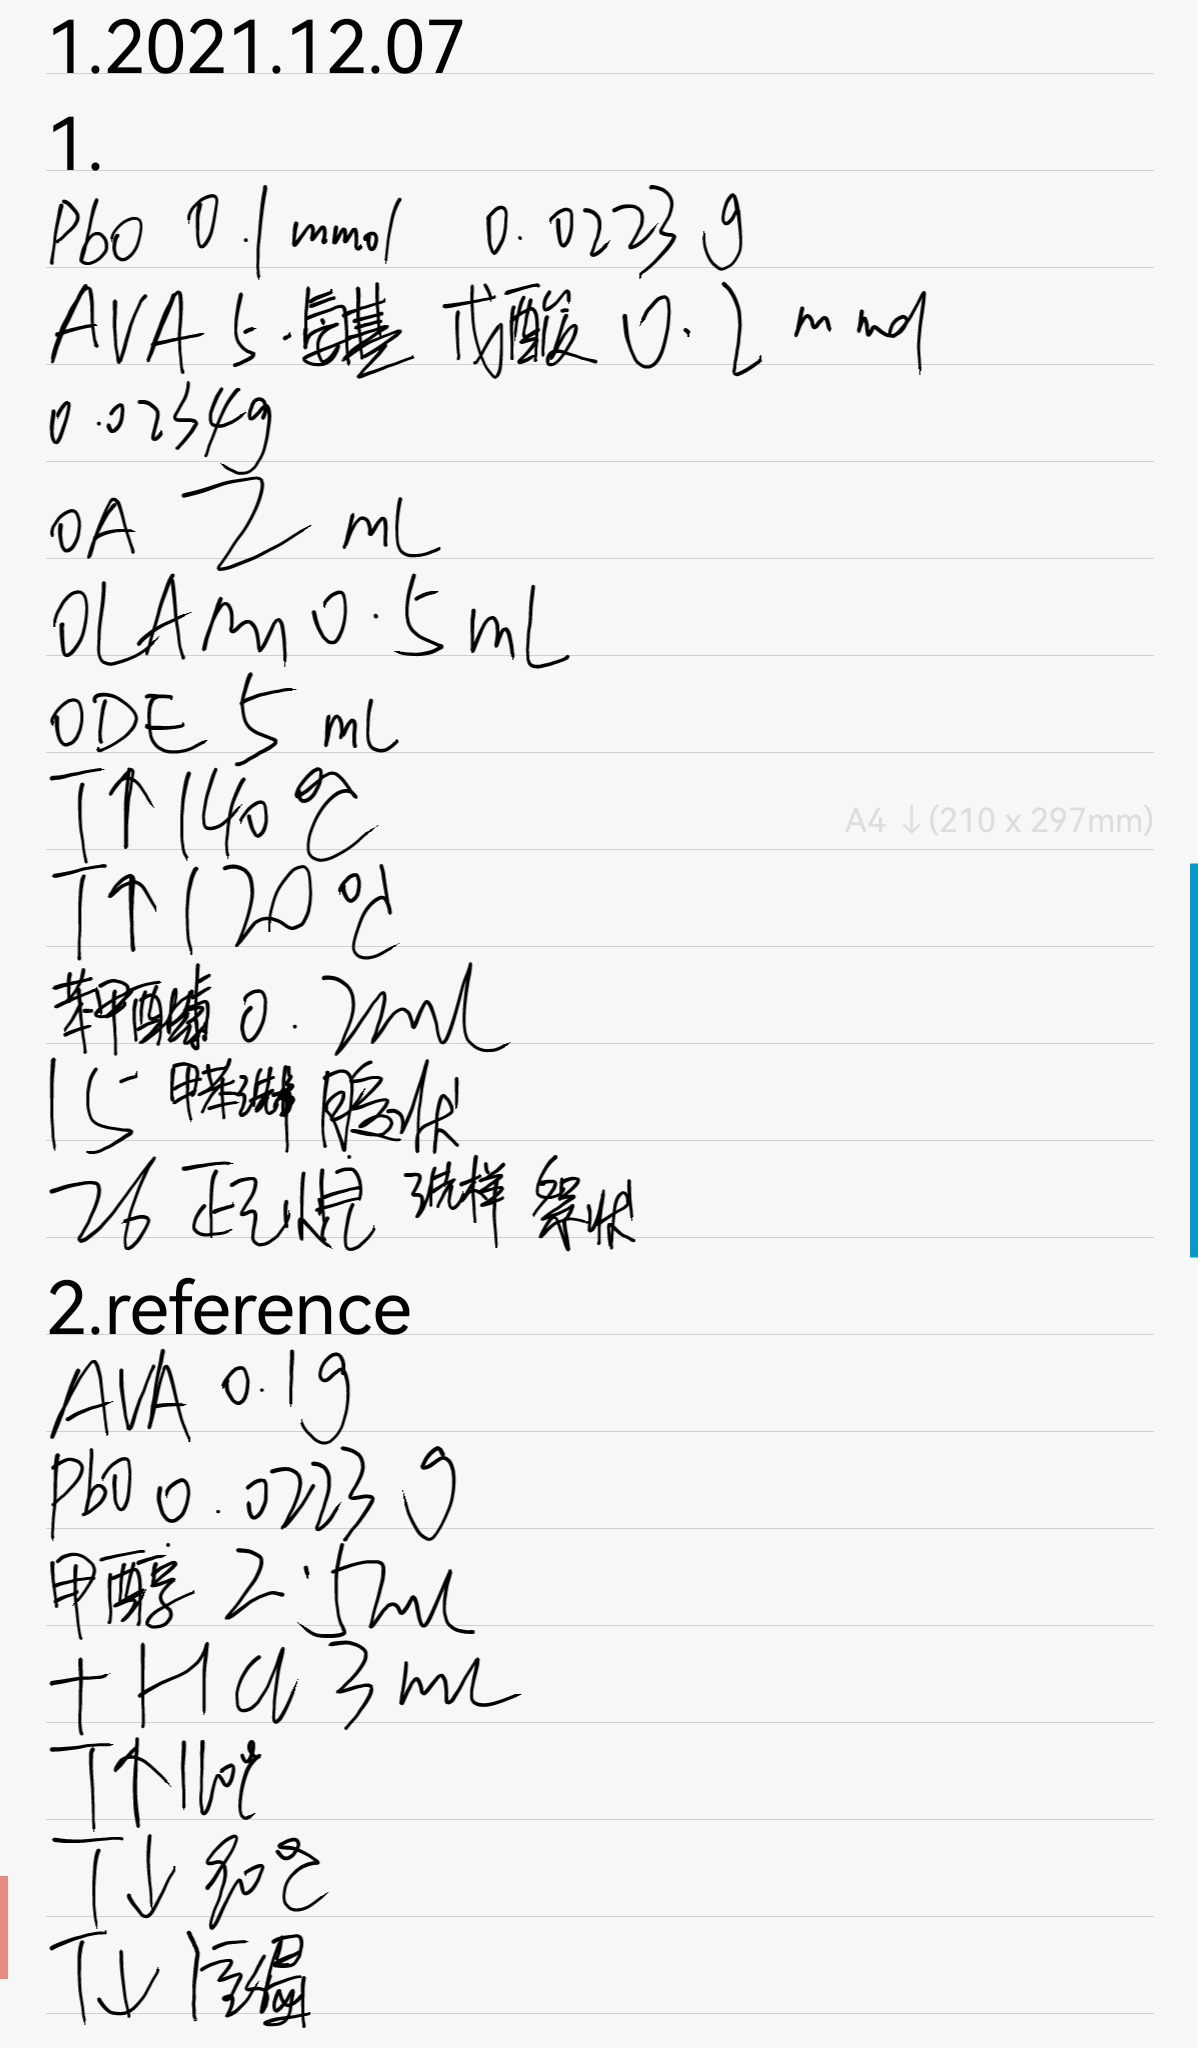 1.2021.12.07
1.
PbO 0.1 mmol 0.0223 g
AVA 5.氨基戊酸 0.2 mmol
0.0234g
OA 2 mL
OLAm 0.5 mL
ODE 5 mL
T↑140℃
T↑120℃
A4 ↓(210 x 297mm)
苯甲酰 0.2mL
15 甲苯洗样 胶状
26 正己烷 洗样 絮状
2.reference
AVA 0.1g
PbO 0.0223 g
甲醇 2.5mL
+HCl 3mL
T↑110℃
T↓80℃
T↓室温